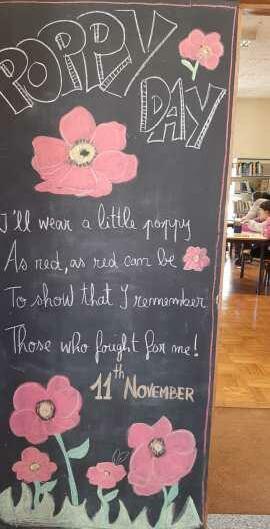 POPPY
DAY
I'll wear a little poppy
As red, as red can be
To show that I remember
Those who fought for me!
11th NOVEMBER